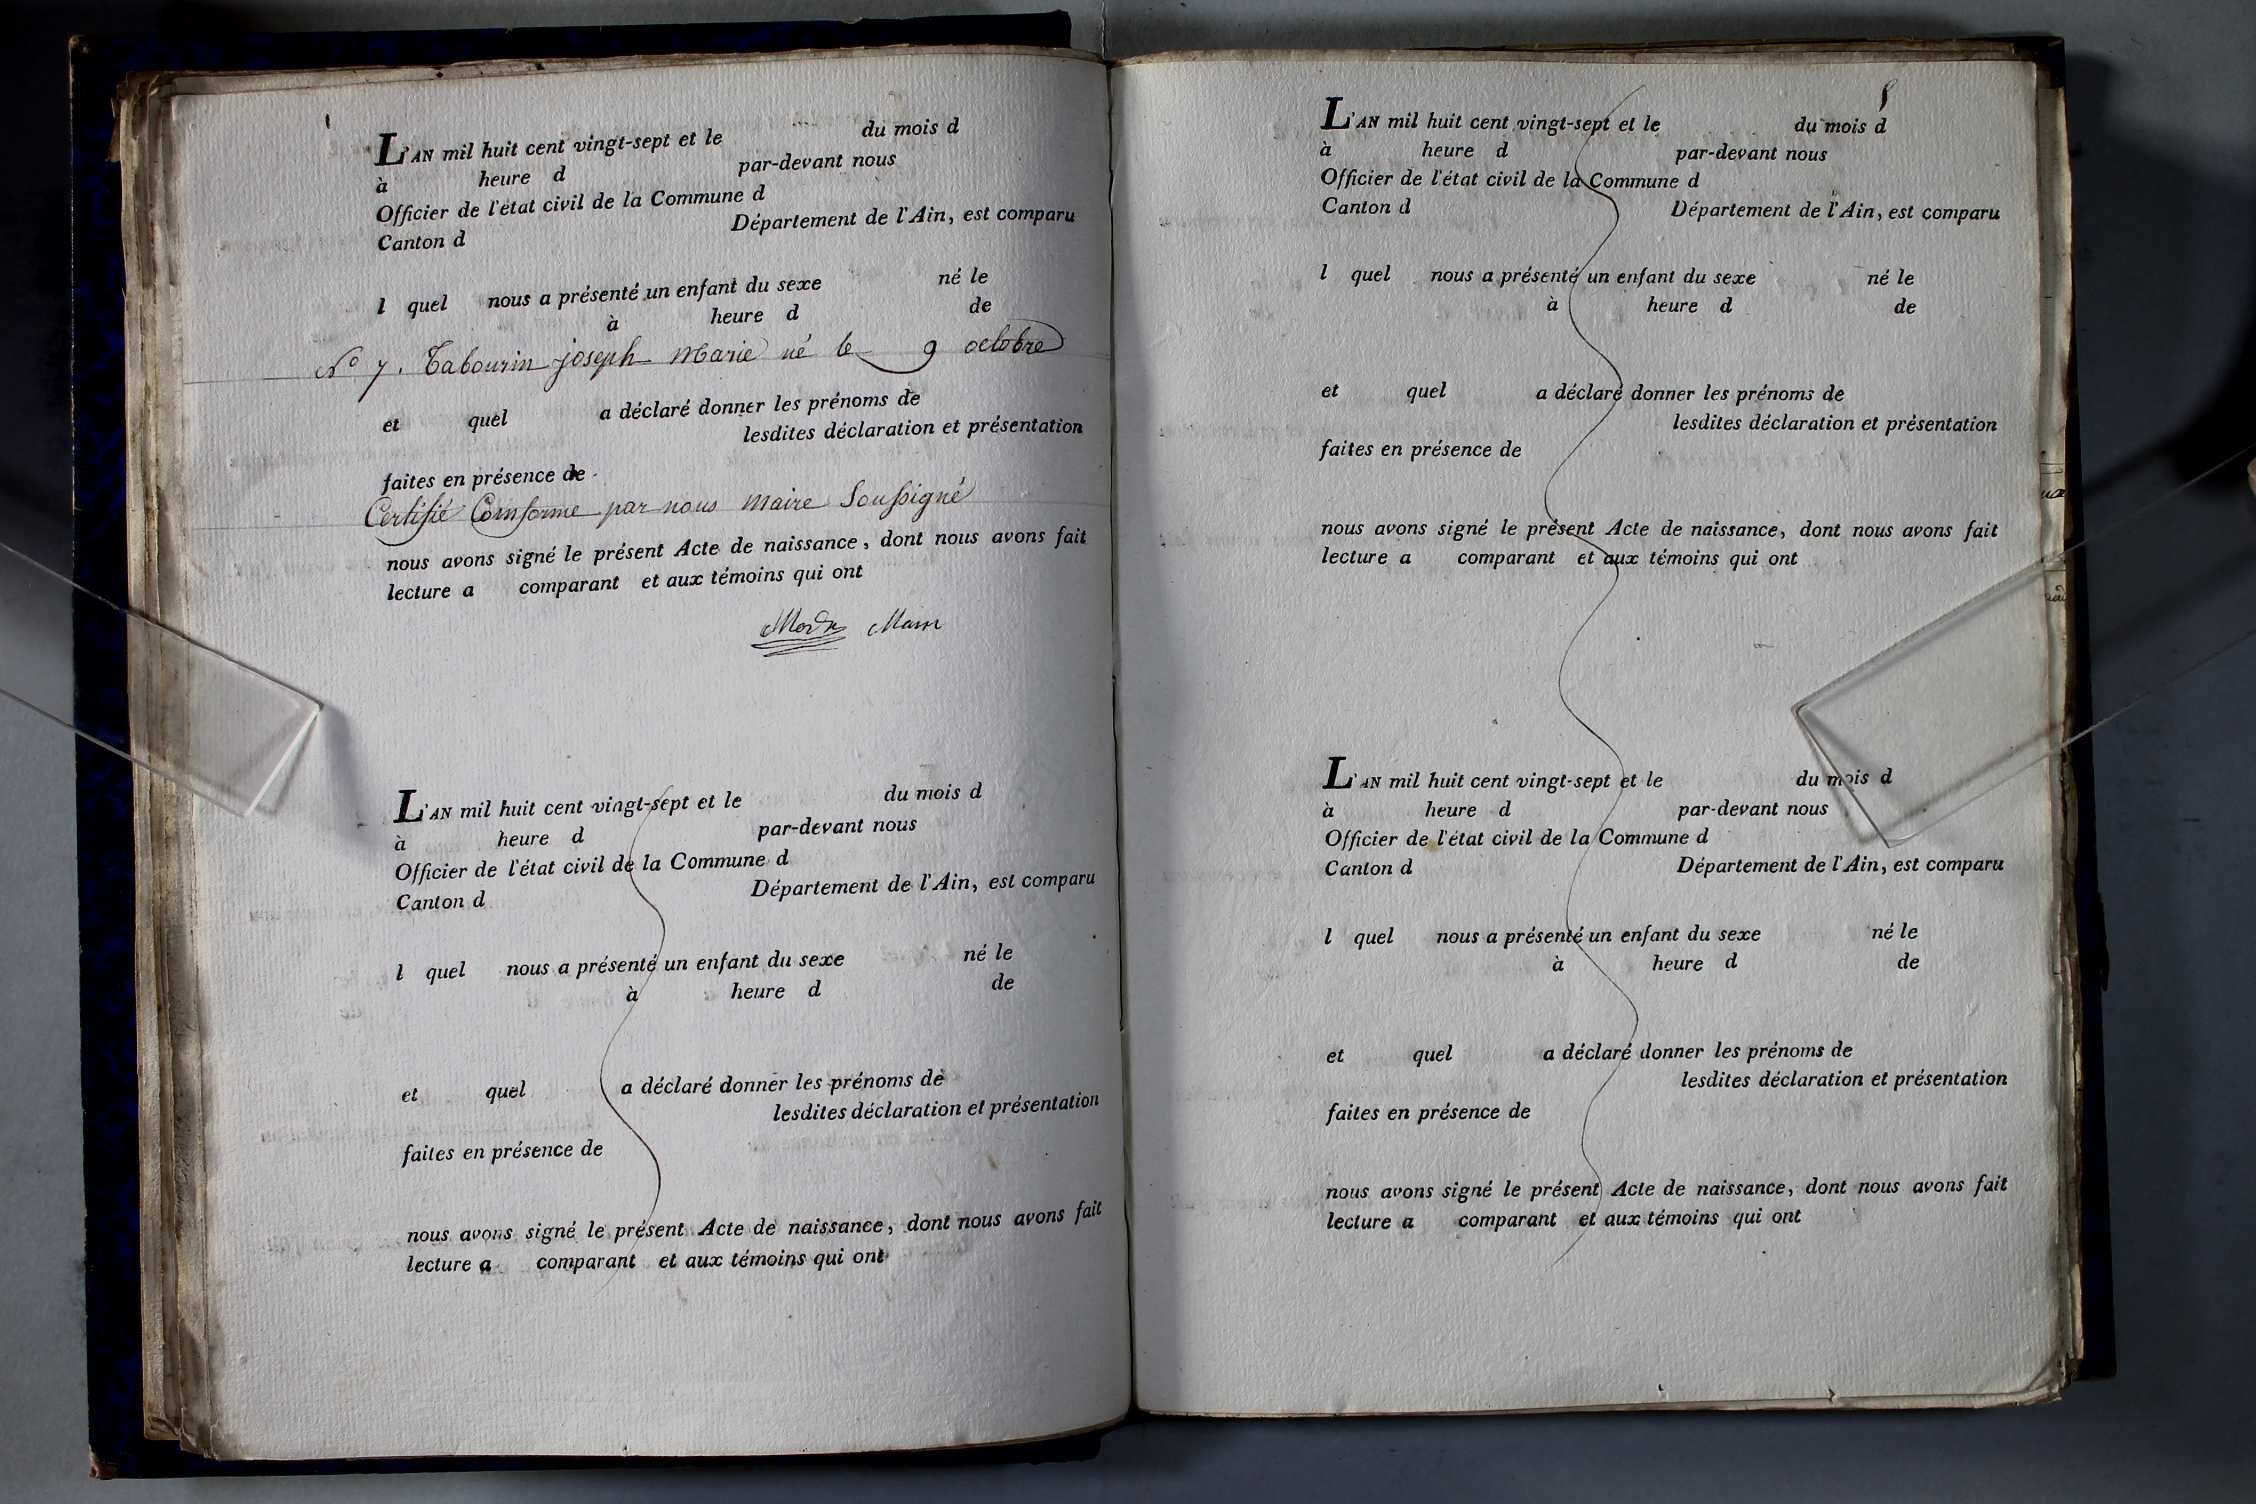 L'AN mil huit cent vingt-sept et le du mois d
à heure d par-devant nous
Officier de l'état civil de la Commune d
Canton d Département de l'Ain, est comparu
l quel nous a présenté un enfant du sexe né le
à heure d de
No 7. Tabourin joseph Marie né le 9 octobre
et quel a déclaré donner les prénoms de
lesdites déclaration et présentation
faites en présence de
Certifié Comforme par nous maire Soussigné
nous avons signé le présent Acte de naissance, dont nous avons fait
lecture a comparant et aux témoins qui ont
L'AN mil huit cent vingt-sept et le du mois d
à heure d par-devant nous
Officier de l'état civil de la Commune d
Canton d Département de l'Ain, est comparu
l quel nous a présenté un enfant du sexe né le
à heure d de
et quel a déclaré donner les prénoms de
lesdites déclaration et présentation
faites en présence de
nous avons signé le présent Acte de naissance, dont nous avons fait
lecture a comparant et aux témoins qui ont
L'AN mil huit cent vingt-sept et le du mois d
à heure d par-devant nous
Officier de l'état civil de la Commune d
Canton d Département de l'Ain, est comparu
l quel nous a présenté un enfant du sexe né le
à heure d de
et quel a déclaré donner les prénoms de
lesdites déclaration et présentation
faites en présence de
nous avons signé le présent Acte de naissance, dont nous avons fait
lecture a comparant et aux témoins qui ont
L'AN mil huit cent vingt-sept et le du mois d
à heure d par-devant nous
Officier de l'état civil de la Commune d
Canton d Département de l'Ain, est comparu
l quel nous a présenté un enfant du sexe né le
à heure d de
et quel a déclaré donner les prénoms de
lesdites déclaration et présentation
faites en présence de
nous avons signé le présent Acte de naissance, dont nous avons fait
lecture a comparant et aux témoins qui ont